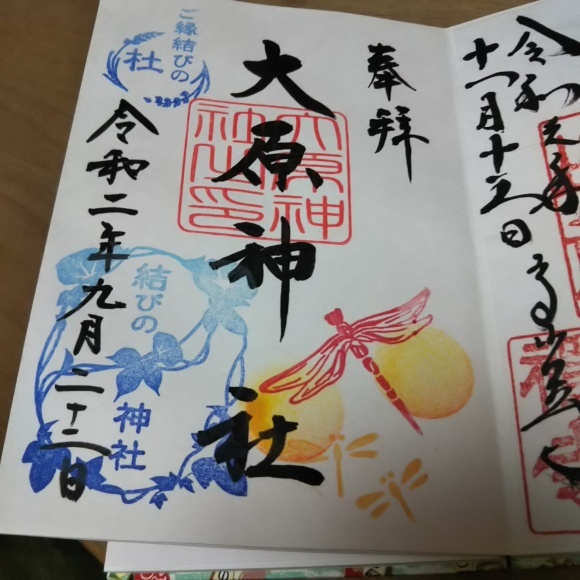 奉拝
大原神社
令和二年九月二十二日
ご縁結びの
杜
結びの
神社
大原神
社之印
令和元年
十一月十五日